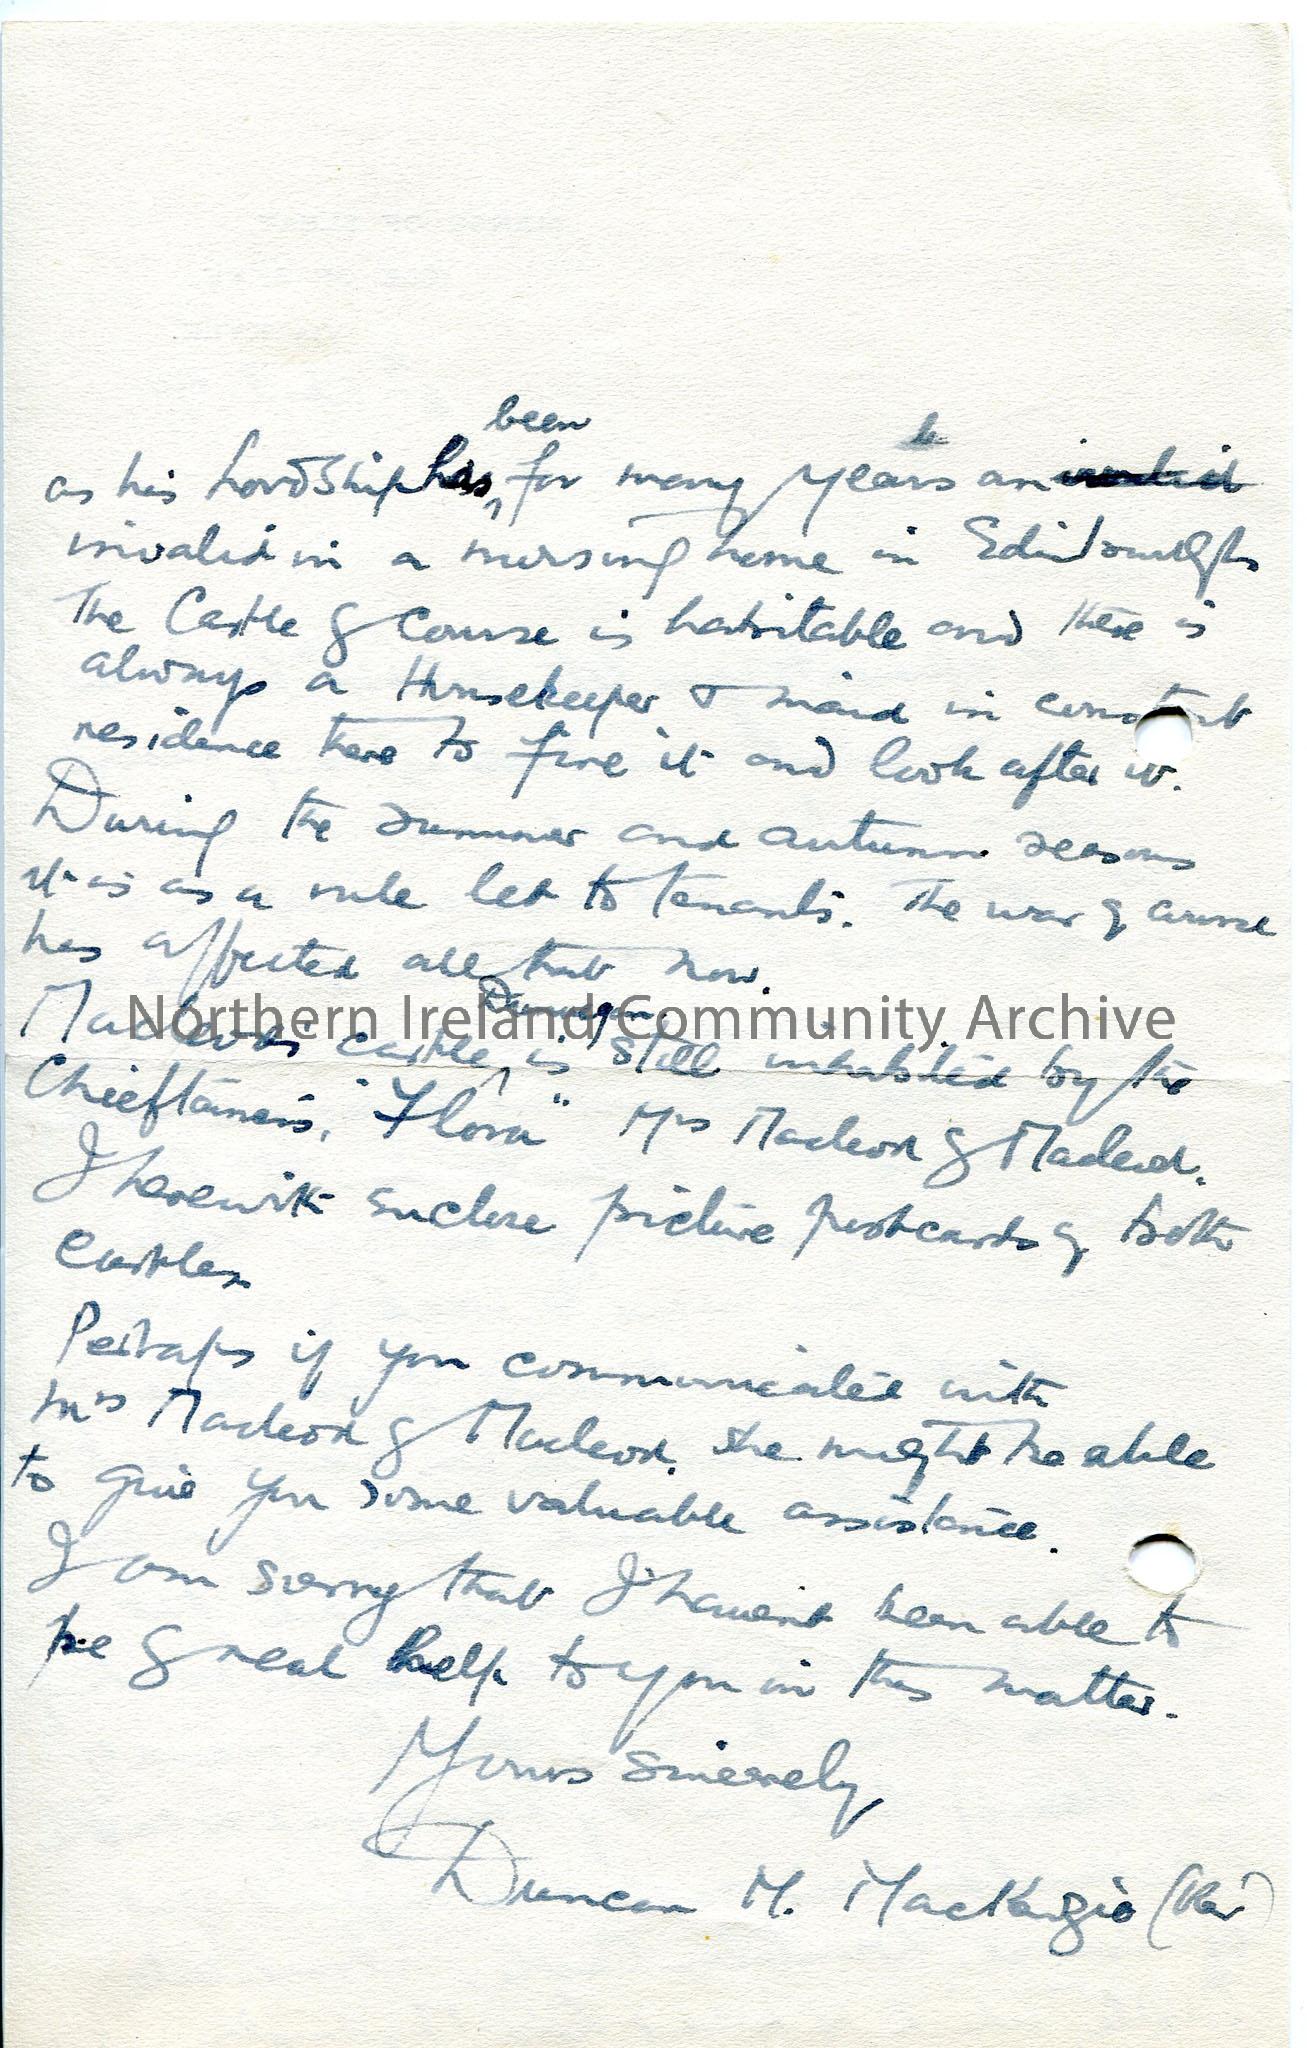 been
as his Lordship has for many years an invalid
invalid in a nursing home in Edinburgh
The Castle of course is habitable and there is
always a Housekeeper & maid in constant
residence there to fire it and look after it.
During the summer and autumn seasons
it is as a rule let to tenants. The war of course
has affected all that now.
Dunvegan
Macleods' castle, is still inhabited by the
Chieftainess, "Flora" Mrs Macleod of Macleod.
I herewith enclose picture postcards of both
Castles
Perhaps if you communicated with
Mrs Macleod of Macleod. she might be able
to give you some valuable assistance.
I am sorry that I havent been able to
be of real help to you in this matter.
Yours sincerely
Duncan M. MacKenzie (Rev)
Northern Ireland Community Archive